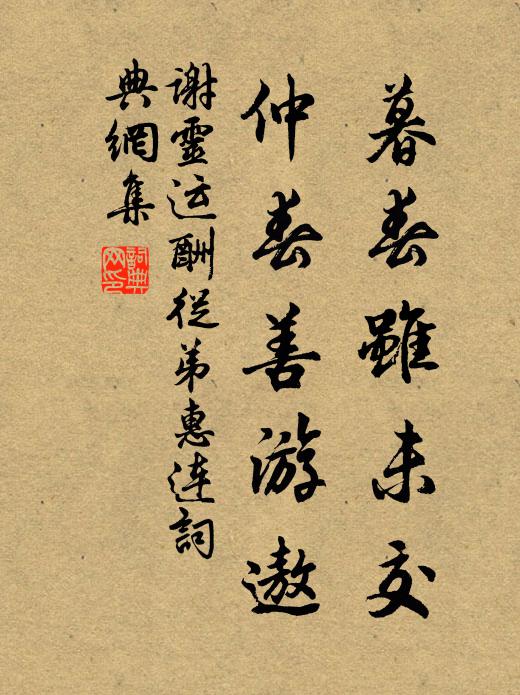 暮春雖未交
仲春善游遨
謝靈运酬從弟惠連詞
典網集
詞典
网印